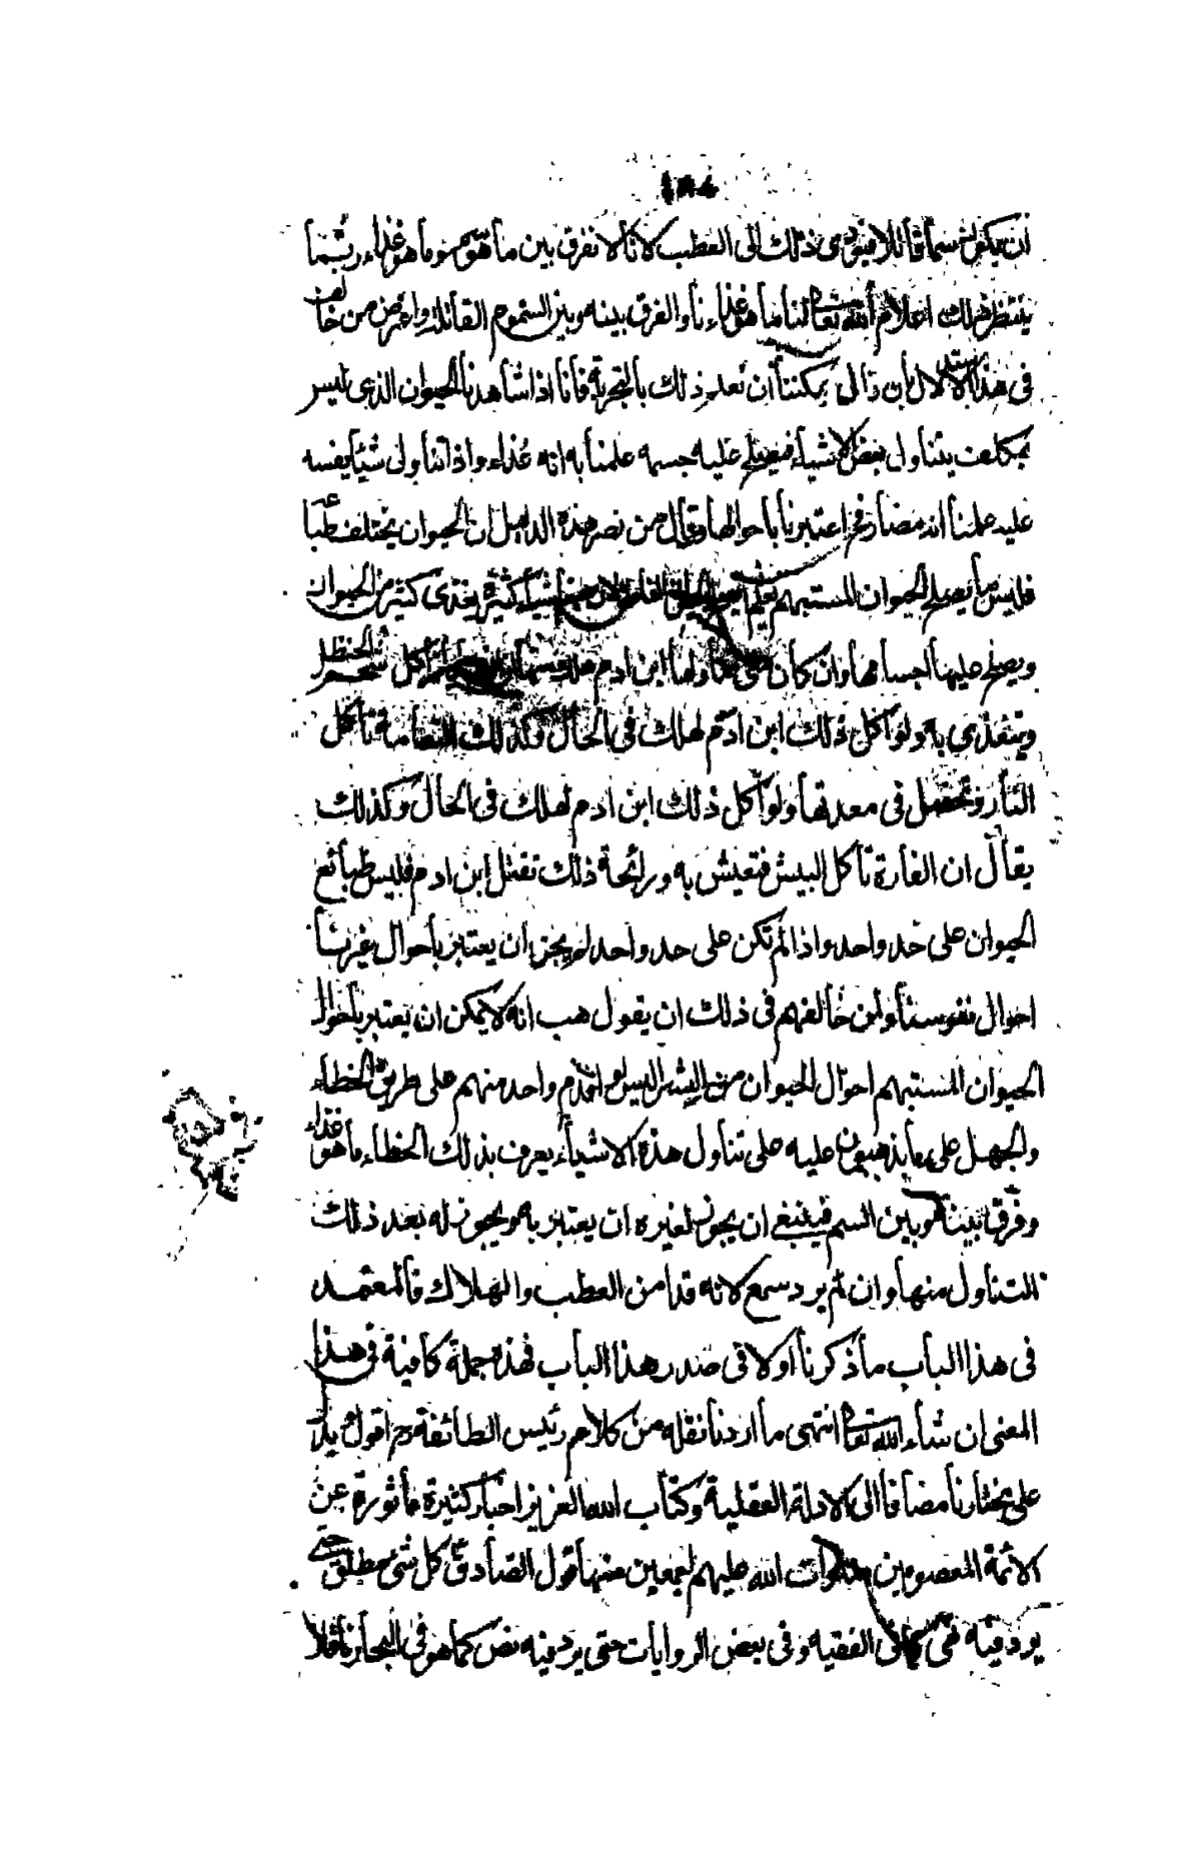 ان يكون سما قاتلا فيؤدى ذلك الى العطب لانا لا نفرق بين ما هو سم وما هو غذاء وانما
ينتظر فى ذلك اعلام الله تعالى لنا ما هو غذاءنا والفرق بينه وبين السموم القاتلة واعترض من خالف
فى هذا الاستدلال بان قال يمكننا ان نعلم ذلك بالتجربة فانا اذا شاهدنا الحيوان الذى ليس
بمكلف يتناول بعض الاشياء فيصلح عليه جسمه علمنا به انه غذاء واذا تناول شيئا يفسد
عليه علمنا انه مضار فح اعتبرنا باحوالها وقال من نصر هذه الدليل ان الحيوان يختلف طباعه
فليس ما يصلح الحيوان المستبهم يعلم انه يصلح اشياء كثيرة يغتذى كثير من الحيوان
ويصلح عليها اجسامها وان كان متى تناولها ابن ادم هلك اكل شحم الحنظل
ويتغذى به ولو اكل ذلك ابن ادم لهلك فى الحال وكذلك النعامة تاكل
النار وتحصل فى معدتها ولو اكل ذلك ابن ادم لهلك فى الحال وكذلك
يقال ان الفارة تاكل البيش فتعيش به ورائحة ذلك تقتل ابن ادم فليس طبائع
الحيوان على حد واحد واذا لم تكن على حد واحد لم يجز ان يعتبر باحوال غيرنا
احوال نفوسنا ولمن خالفهم فى ذلك ان يقول هب انه لا يمكن ان يعتبر باحوال
الحيوان المستبهم احوال الحيوان من البشر اليس لو اقدم واحد منهم على طريق الخطاء
والجهل على ما يذهبون عليه على تناول هذه الاشياء يعرف بذلك الخطاء ما هو غذاء
وفرق بينه وبين السم فينبغى ان يجوز لغيره ان يعتبر به ويجوز له بعد ذلك
التناول منها وان لم يرد سمع لانه قد امن العطب والهلاك فالمعتمد
فى هذا الباب ما ذكرنا اولا فى صدر هذا الباب فهذه جملة كافية فى هذا
المعنى ان شاء الله تعالى انتهى ما اردنا نقله من كلام رئيس الطائفة رح اقول يدل
على مختارنا مضافا الى الادلة العقلية وكتاب الله العزيز اخبار كثيرة ماثورة عن
الائمة المعصومين صلوات الله عليهم اجمعين منها قول الصادق ع كل شئ مطلق حتى
يرد فيه نهى كما فى الفقيه وفى بعض الروايات حتى يرد فيه نص كما هو فى البحار ناقلا